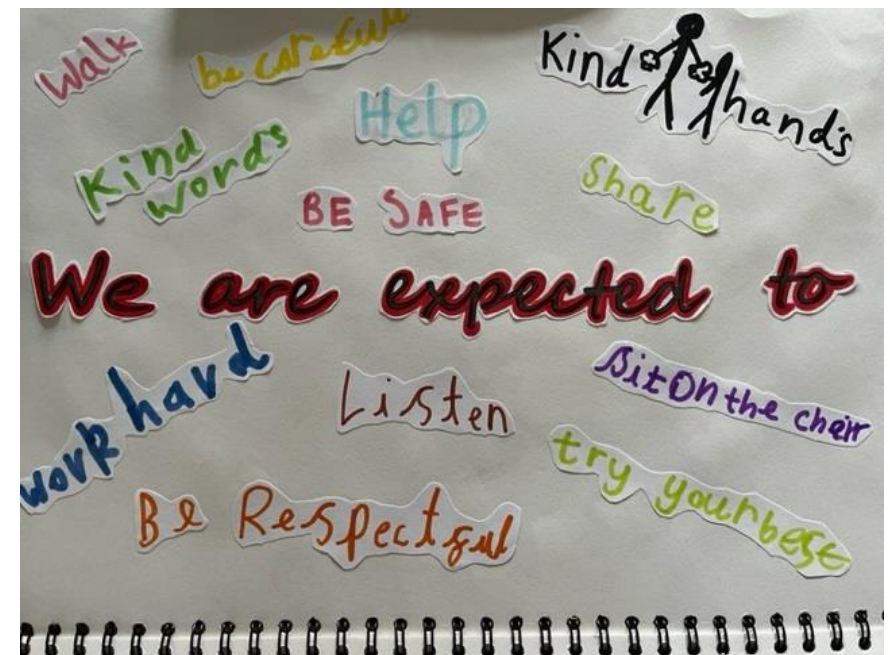 Walk
be careful
Help
Kind hands
Kind
words
BE SAFE
share
We are expected to
work hard
Listen
Sit On the chair
try your best
Be Respectful